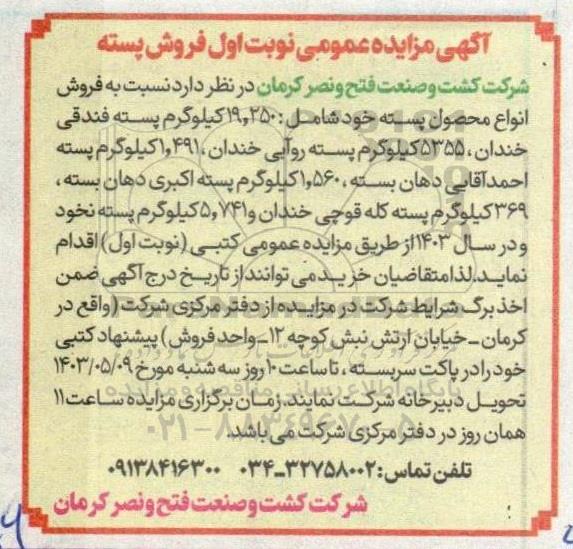 آگهی مزایده عمومی نوبت اول فروش پسته
شرکت کشت و صنعت فتح و نصر کرمان در نظر دارد نسبت به فروش
انواع محصول پسته خود شامل: ۱۹,۲۵۰ کیلوگرم پسته فندقی
خندان، ۵۳۵۵ کیلوگرم پسته روآیی خندان، ۱,۴۹۱ کیلوگرم پسته
احمدآقایی دهان بسته، ۱,۵۶۰ کیلوگرم پسته اکبری دهان بسته،
۳۶۹ کیلوگرم پسته کله قوچی خندان و ۵,۷۴۱ کیلوگرم پسته نخود
و در سال ۱۴۰۳ از طریق مزایده عمومی کتبی (نوبت اول) اقدام
نماید. لذا متقاضیان خرید می توانند از تاریخ درج آگهی ضمن
اخذ برگ شرایط شرکت در مزایده از دفتر مرکزی شرکت (واقع در
کرمان - خیابان ارتش نبش کوچه ۱۲- واحد فروش) پیشنهاد کتبی
خود را در پاکت سربسته، تا ساعت ۱۰ روز سه شنبه مورخ ۱۴۰۳/۰۵/۰۹
تحویل دبیرخانه شرکت نمایند. زمان برگزاری مزایده ساعت ۱۱
همان روز در دفتر مرکزی شرکت می باشد.
تلفن تماس: ۳۲۷۵۸۰۰۲-۰۳۴ ۰۹۱۳۸۴۱۶۳۰۰
شرکت کشت و صنعت فتح و نصر کرمان